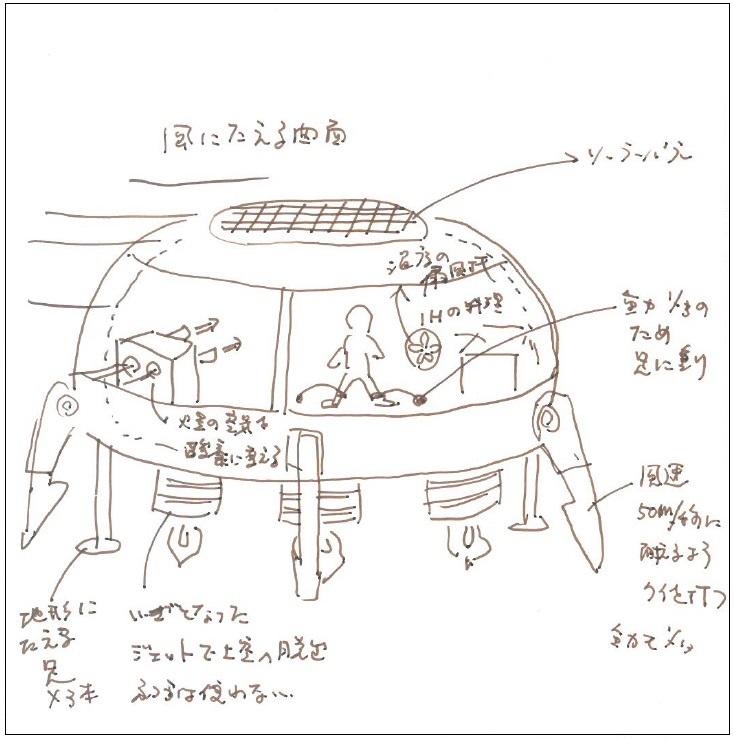 風にたえる曲面
ソーラーパネル
温度の
扇風機
IHの料理
重力1/3の
ため
足に重り
火星の空気を
酸素に変える
風速
50m/秒に
耐えるよう
クイを打つ
地形に
たえる
足
×3本
いざとなった
ジェットで上空へ脱出
ふつうは使わない